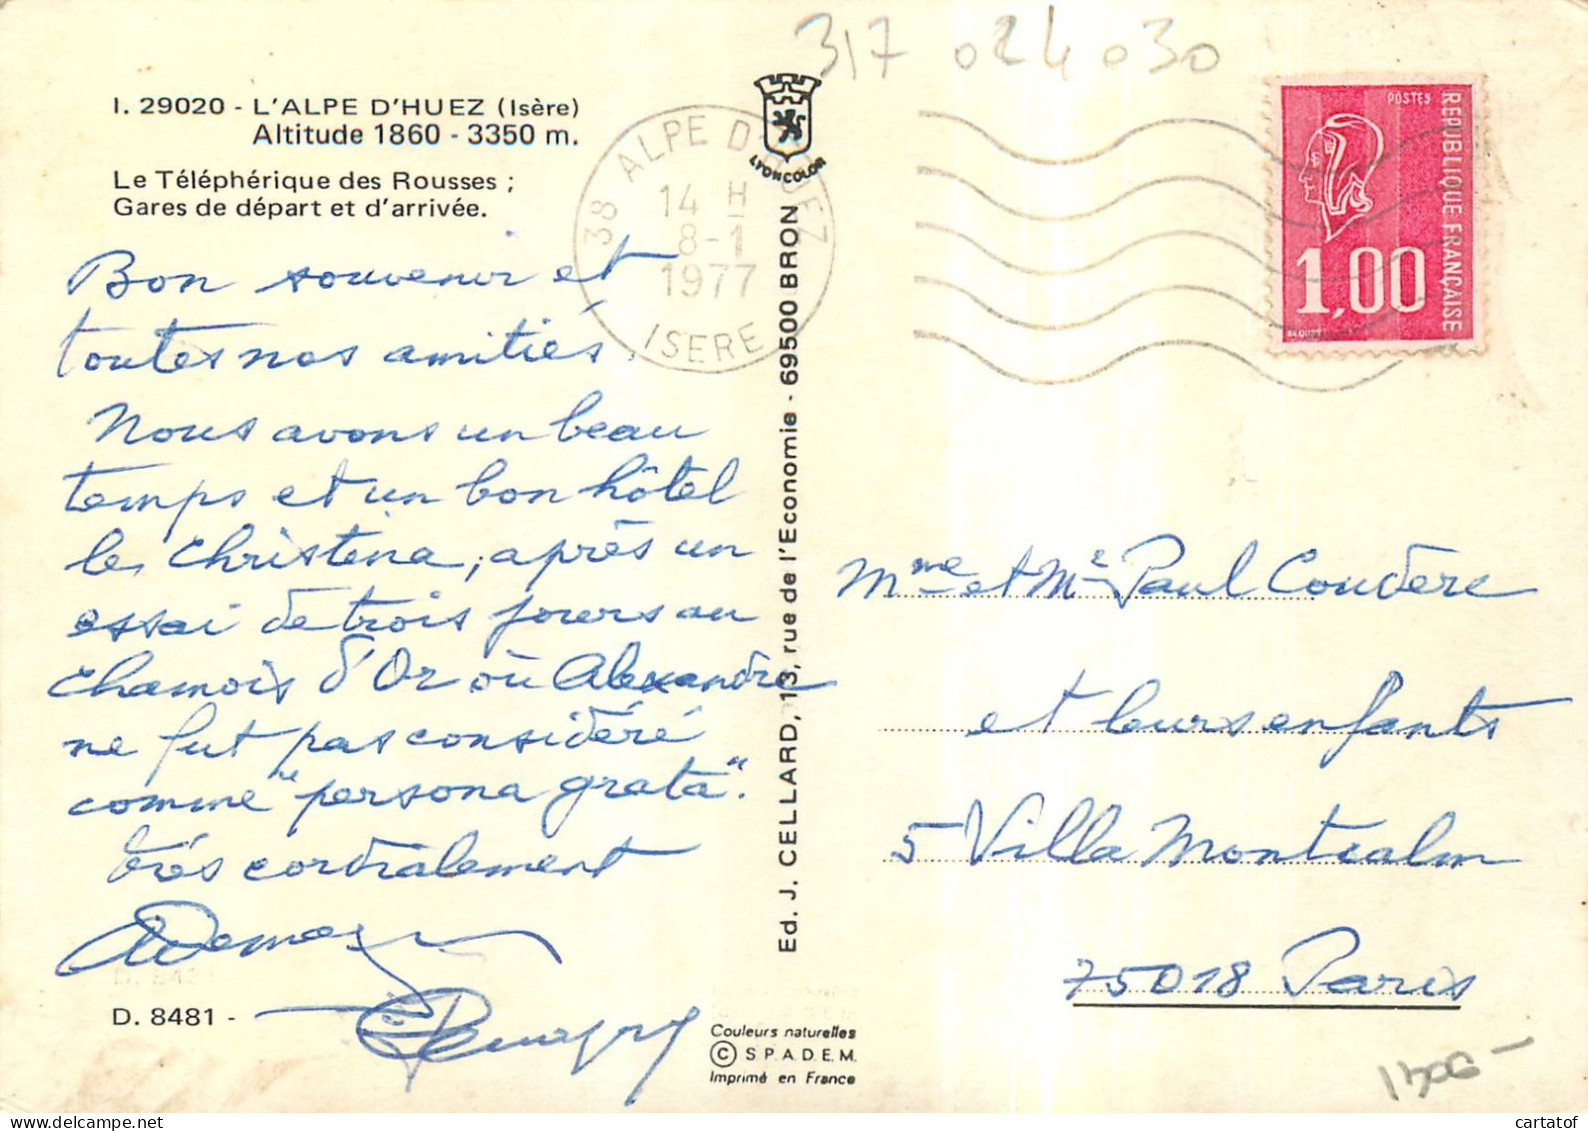 317 024 030
I. 29020 - L'ALPE D'HUEZ (Isère)
Altitude 1860 - 3350 m.
Le Téléphérique des Rousses ;
Gares de départ et d'arrivée.
Bon souvenir et
toutes nos amitiés.
Nous avons un beau
temps et un bon hôtel
le Christina, après un
essai de trois jours au
Chamois d'Or où Alexandre
ne fut pas considéré
comme "persona grata".
très cordialement
D. 8481 -
LYONCOLOR
Ed. J. CELLARD, 13, rue de l'Economie - 69500 BRON
Couleurs naturelles
© S.P.A.D.E.M.
Imprimé en France
38 ALPE D'HUEZ
14 H
8-1
1977
ISERE
POSTES
REPUBLIQUE FRANÇAISE
1,00
Mme et Mr Paul Coudere
et leurs enfants
5 Villa Montcalm
75018 Paris
cartatof